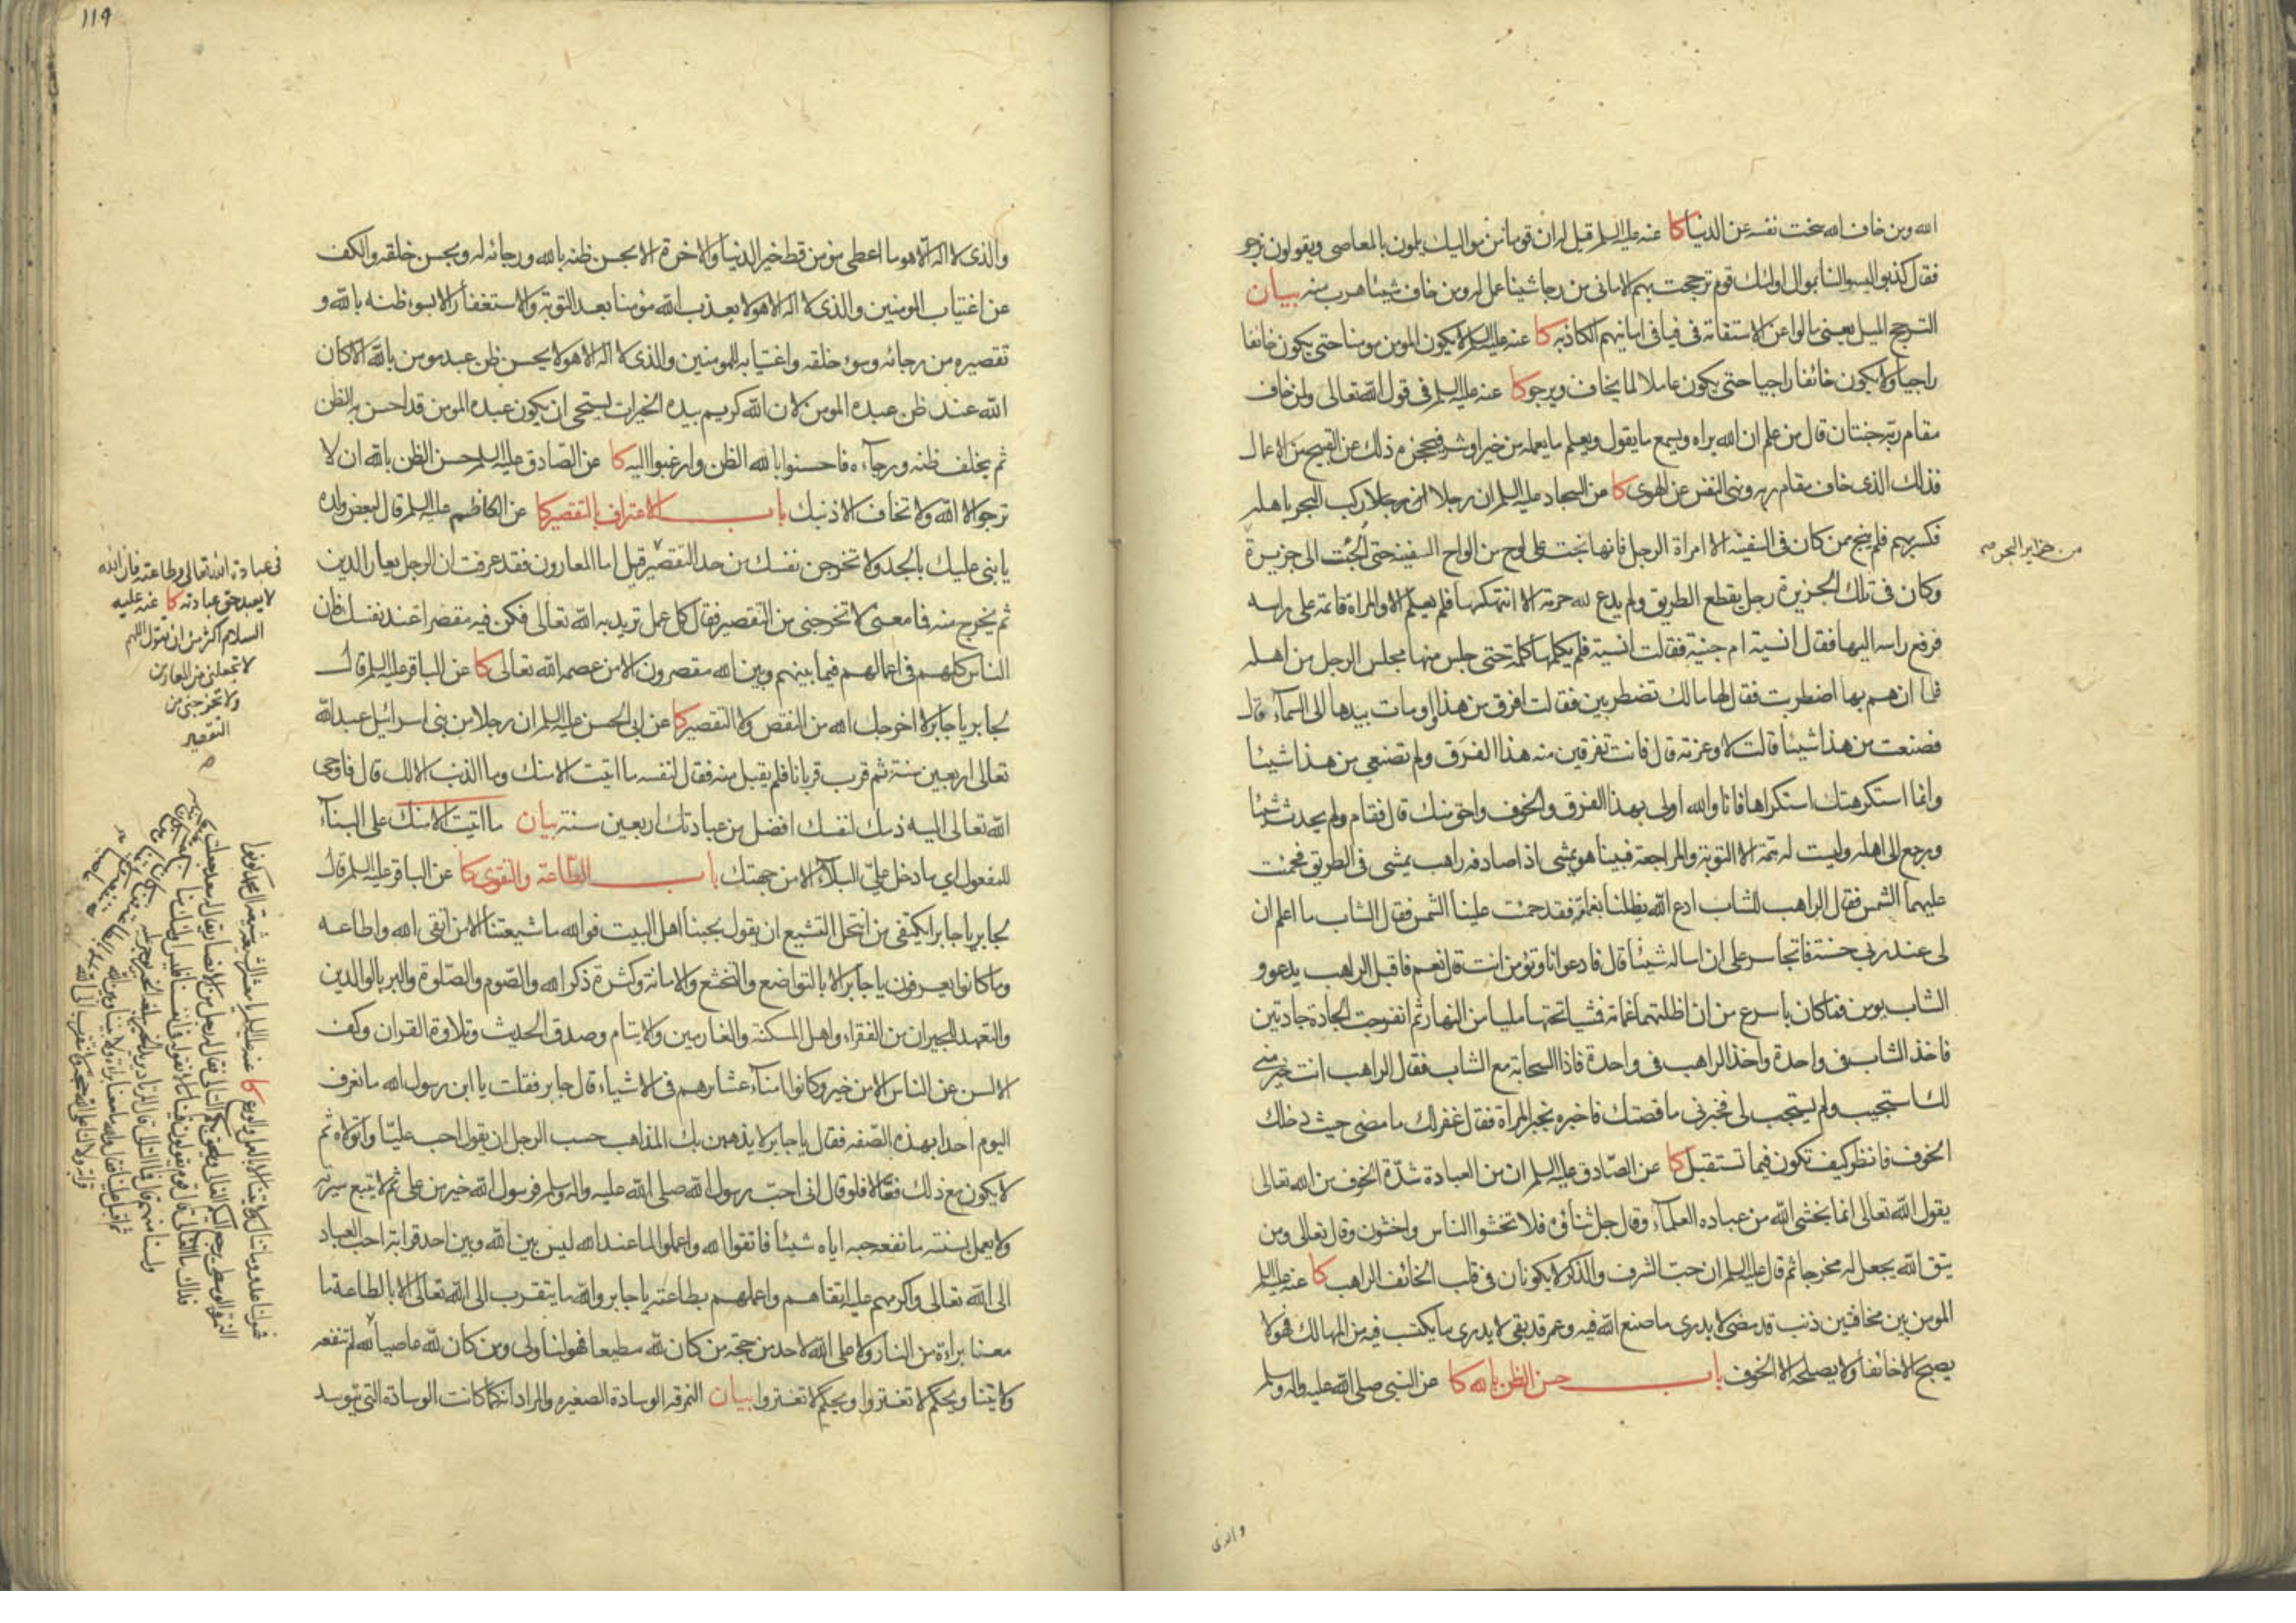 الله ومن خاف الله سخت نفسه عن الدنيا كا عنه عليه السلم قيل له ان قوما من مواليك يلمون بالمعاصى ويقولون نرجو
فقال كذبوا ليسوا لنا بموال اولئك قوم ترجحت بهم الامانى من رجا شيئا عمل له ومن خاف شيئا هرب منه بيان
الترجح الميل يعنى مالوا عن الاستقامة فى فيافى امانيهم الكاذبة كا عنه عليه السلم لا يكون المومن مومنا حتى يكون خائفا
راجيا ولا يكون خائفا راجيا حتى يكون عاملا لما يخاف ويرجو كا عنه عليه السلم فى قول الله تعالى ولمن خاف
مقام ربه جنتان قال من علم ان الله يراه ويسمع ما يقول ويعلم ما يعمله من خير او شر فيحجزه ذلك عن القبيح من الاعمال
فذلك الذى خاف مقام ربه ونهى النفس عن الهوى كا عن السجاد عليه السلم ان رجلا ركب البحر باهله
فكسر بهم فلم ينج ممن كان فى السفينة الا امراة الرجل فانها نجت على لوح من الواح السفينة حتى الجئت الى جزيرة
من جزاير البحر صح
وكان فى تلك الجزيرة رجل يقطع الطريق ولم يدع لله حرمة الا انتهكها فلم يعلم الا والمراة قائمة على راسه
فرفع راسه اليها فقال انسية ام جنية فقالت انسية فلم يكلمها كلمة حتى جلس منها مجلس الرجل من اهله
فلما ان هم بها اضطربت فقال لها مالك تضطربين فقالت افرق من هذا واومات بيدها الى السماء قال
فصنعت من هذا شيئا قالت لا وعزته قال فانت تفرقين منه هذا الفرق ولم تصنعى من هذا شيئا
وانما استكرهتك استكراها فانا والله اولى بهذا الفرق والخوف واحق منك قال فقام ولم يحدث شيئا
ورجع الى اهله وليست له همة الا التوبة والمراجعة فبينا هو يمشى اذ صادفه راهب يمشى فى الطريق فحميت
عليهما الشمس فقال الراهب للشاب ادع الله يظلنا بغمامة فقد حميت علينا الشمس فقال الشاب ما اعلم ان
لى عند ربى حسنة فاتجاسر على ان اساله شيئا قال فادعو انا وتؤمن انت قال نعم فاقبل الراهب يدعو و
الشاب يومن فما كان باسرع من ان اظلتهما غمامة فمشيا تحتها مليا من النهار ثم انفرجت الجادة جادتين
فاخذ الشاب فى واحدة واخذ الراهب فى واحدة فاذا السحابة مع الشاب فقال الراهب انت خير منى
لك استجيب ولم يستجب لى فخبرنى ما قصتك فاخبره بخبر المراة فقال غفر لك ما مضى حيث دخلك
الخوف فانظر كيف تكون فيما تستقبل كا عن الصادق عليه السلم ان من العبادة شدة الخوف من الله تعالى
يقول الله تعالى انما يخشى الله من عباده العلماء وقال جل ثناؤه فلا تخشوا الناس واخشون وقال تعالى ومن
يتق الله يجعل له مخرجا ثم قال عليه السلم ان حب الشرف والذكر لا يكونان فى قلب الخائف الراهب كا عنه عليه السلم
المومن بين مخافتين ذنب قد مضى لا يدرى ما صنع الله فيه وعمر قد بقى لا يدرى ما يكتسب فيه من المهالك فهو لا
يصبح الا خائفا ولا يصلحه الا الخوف باب حسن الظن بالله كا عن النبى صلى الله عليه واله وسلم
والذى
119
والذى لا اله الا هو ما اعطى مومن قط خير الدنيا والاخرة الا بحسن ظنه بالله ورجائه له وبحسن خلقه والكف
عن اغتياب المومنين والذى لا اله الا هو لا يعذب الله مؤمنا بعد التوبة والاستغفار الا بسوء ظنه بالله و
تقصيره من رجائه وسوء خلقه واغتيابه للمومنين والذى لا اله الا هو لا يحسن ظن عبد مومن بالله الا كان
الله عند ظن عبده المومن لان الله كريم بيده الخيرات يستحى ان يكون عبده المومن قد احسن به الظن
ثم يخلف ظنه ورجاءه فاحسنوا بالله الظن وارغبوا اليه كا عن الصادق عليه السلم حسن الظن بالله ان لا
ترجو الا الله ولا تخاف الا ذنبك باب الاعتراف بالتقصير كا عن الكاظم عليه السلم قال لبعض ولده
يا بنى عليك بالجد ولا تخرجن نفسك من حد التقصير قيل اما المعارون فقد عرفت ان الرجل يعار الدين
ثم يخرج منه فما معنى لا تخرجنى من التقصير فقال كل عمل تريد به الله تعالى فكن فيه مقصرا عند نفسك فان
الناس كلهم فى اعمالهم فيما بينهم وبين الله مقصرون الا من عصمه الله تعالى كا عن الباقر عليه السلم قال
لجابر يا جابر لا اخرجك الله من النقص ولا التقصير كا عن ابى الحسن عليه السلم ان رجلا من بنى اسرائيل عبد الله
تعالى اربعين سنة ثم قرب قربانا فلم يقبل منه فقال لنفسه ما اتيت الا منك وما الذنب الا لك قال فاوحى
الله تعالى اليه ذمك لنفسك افضل من عبادتك اربعين سنة بيان ما اتيت الا منك على البناء
للمفعول اى ما دخل على البلاء الا من جهتك باب الطاعة والتقوى كا عن الباقر عليه السلم قال
لجابر يا جابر ايكتفى من انتحل التشيع ان يقول بحبنا اهل البيت فوالله ما شيعتنا الا من اتقى الله واطاعه
وما كانوا يعرفون يا جابر الا بالتواضع والتخشع والامانة وكثرة ذكر الله والصوم والصلوة والبر بالوالدين
والتعهد للجيران من الفقراء واهل المسكنة والغارمين والايتام وصدق الحديث وتلاوة القران وكف
الالسن عن الناس الا من خير وكانوا امناء عشايرهم فى الاشياء قال جابر فقلت يا ابن رسول الله ما نعرف
اليوم احدا بهذه الصفة فقال يا جابر لا يذهبن بك المذاهب حسب الرجل ان يقول احب عليا واتولاه ثم
لا يكون مع ذلك فعالا فلو قال انى احب رسول الله صلى الله عليه واله وسلم فرسول الله خير من على ثم لا يتبع سيرته
ولا يعمل بسنته ما نفعه حبه اياه شيئا فاتقوا الله واعملوا لما عند الله ليس بين الله وبين احد قرابة احب العباد
الى الله تعالى واكرمهم عليه اتقاهم واعملهم بطاعته يا جابر والله ما يتقرب الى الله تعالى الا بالطاعة ما
معنا براءة من النار ولا على الله لاحد من حجة من كان لله مطيعا فهو لنا ولى ومن كان لله عاصيا لم تنفعه
ولايتنا ويحكم لا تغتروا ويحكم لا تغتروا بيان النمرقة الوسادة الصغيرة والمراد انه كما كانت الوسادة التى يتوسد
فى عبادة الله تعالى وطاعته فان الله
لا يعبد حق عبادته كا عنه عليه
السلام اكثر من ان تقول اللهم
لا تجعلنى من المعارين
ولا تخرجنى من
التقصير